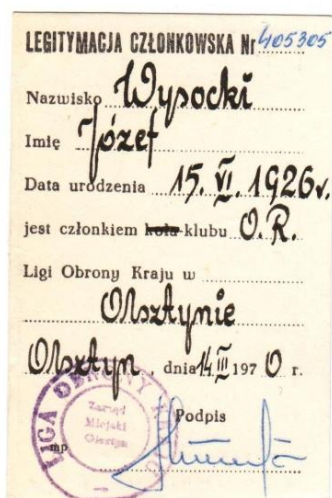 LEGITYMACJA CZŁONKOWSKA Nr 405305
Nazwisko Wysocki
Imię Józef
Data urodzenia 15. VI. 1926r.
jest członkiem koła klubu O.R.
Ligi Obrony Kraju w
Olsztynie
Olsztyn, dnia 14 III 1970 r.
LIGA OBRONY
Zarząd
Miejski
Olsztyn
Podpis
mp.